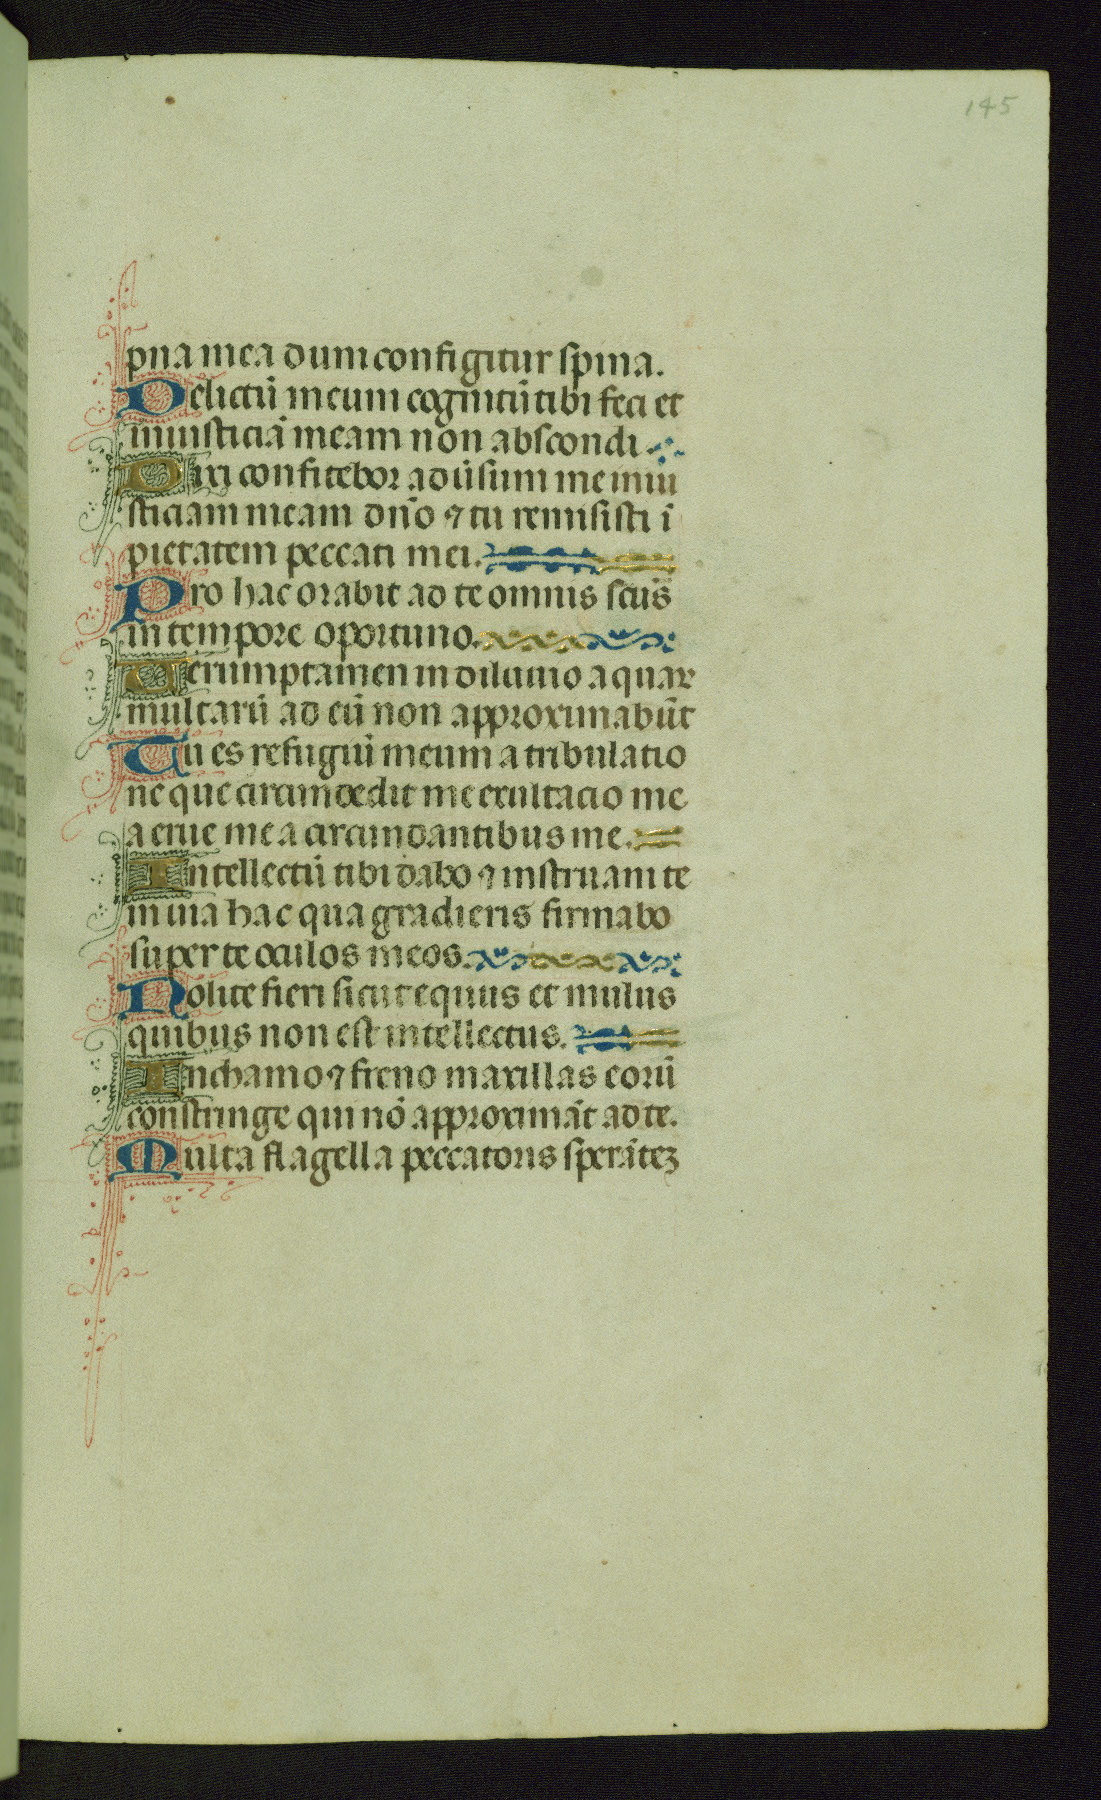 145
pna mea dum configitur spina.
Delictū meum cognitū tibi feci et
iniusticiā meam non abscondi
Dixi confitebor adūsum me iniu
sticiam meam dn̄o ⁊ tu remisisti ī
pietatem peccati mei.
Pro hac orabit ad te omnis sc̄us
in tempore oportuno.
Uerumptamen in diluuio aquar
multarū ad eū non approximabūt
Tu es refugiū meum a tribulatio
ne que circumdedit me exultacio me
a erue me a circumdantibus me.
Intellectū tibi dabo ⁊ instruam te
in uia hac qua gradieris firmabo
super te oculos meos.
Nolite fieri sicut equus et mulus
quibus non est intellectus.
In chamo ⁊ freno maxillas eorū
constringe qui nō approximāt ad te.
Multa flagella peccatoris sperāteʒ